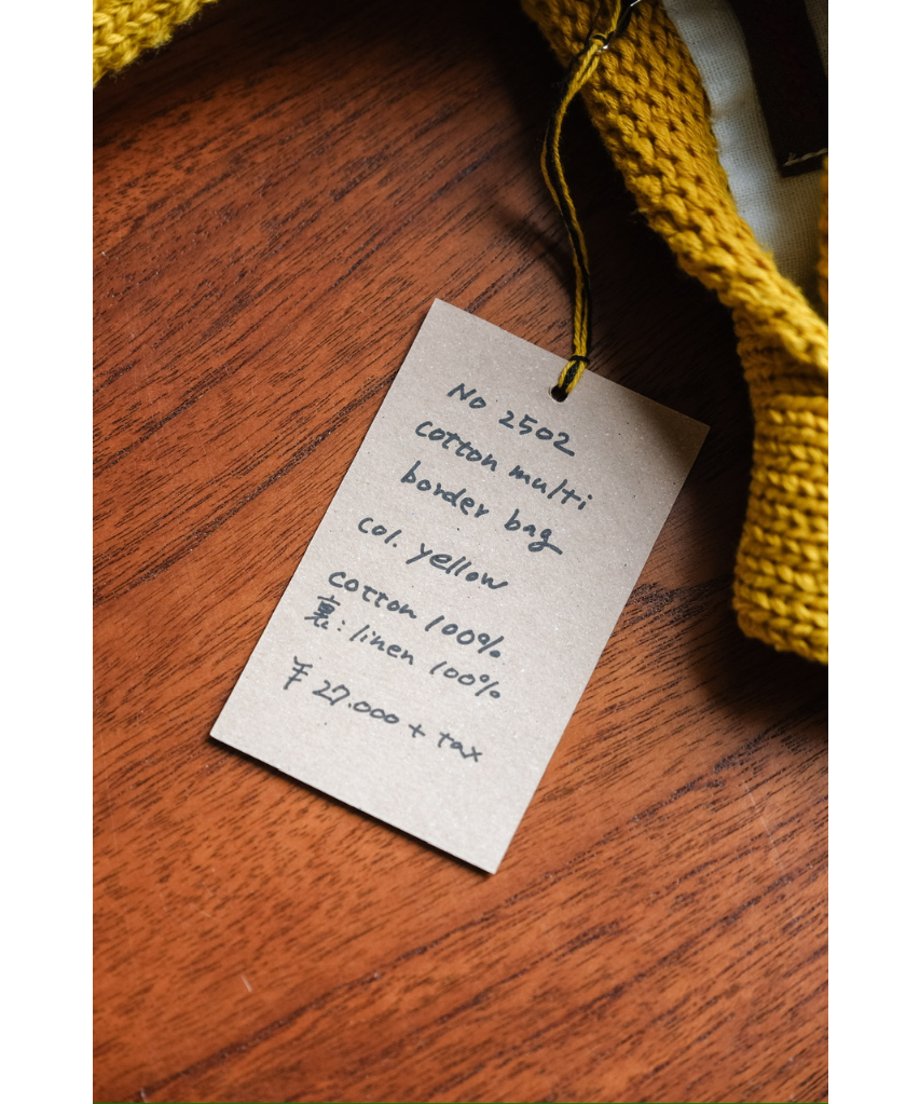 No 2502
cotton multi
border bag
col. yellow
cotton 100%
裏:linen 100%
¥ 27.000 + tax